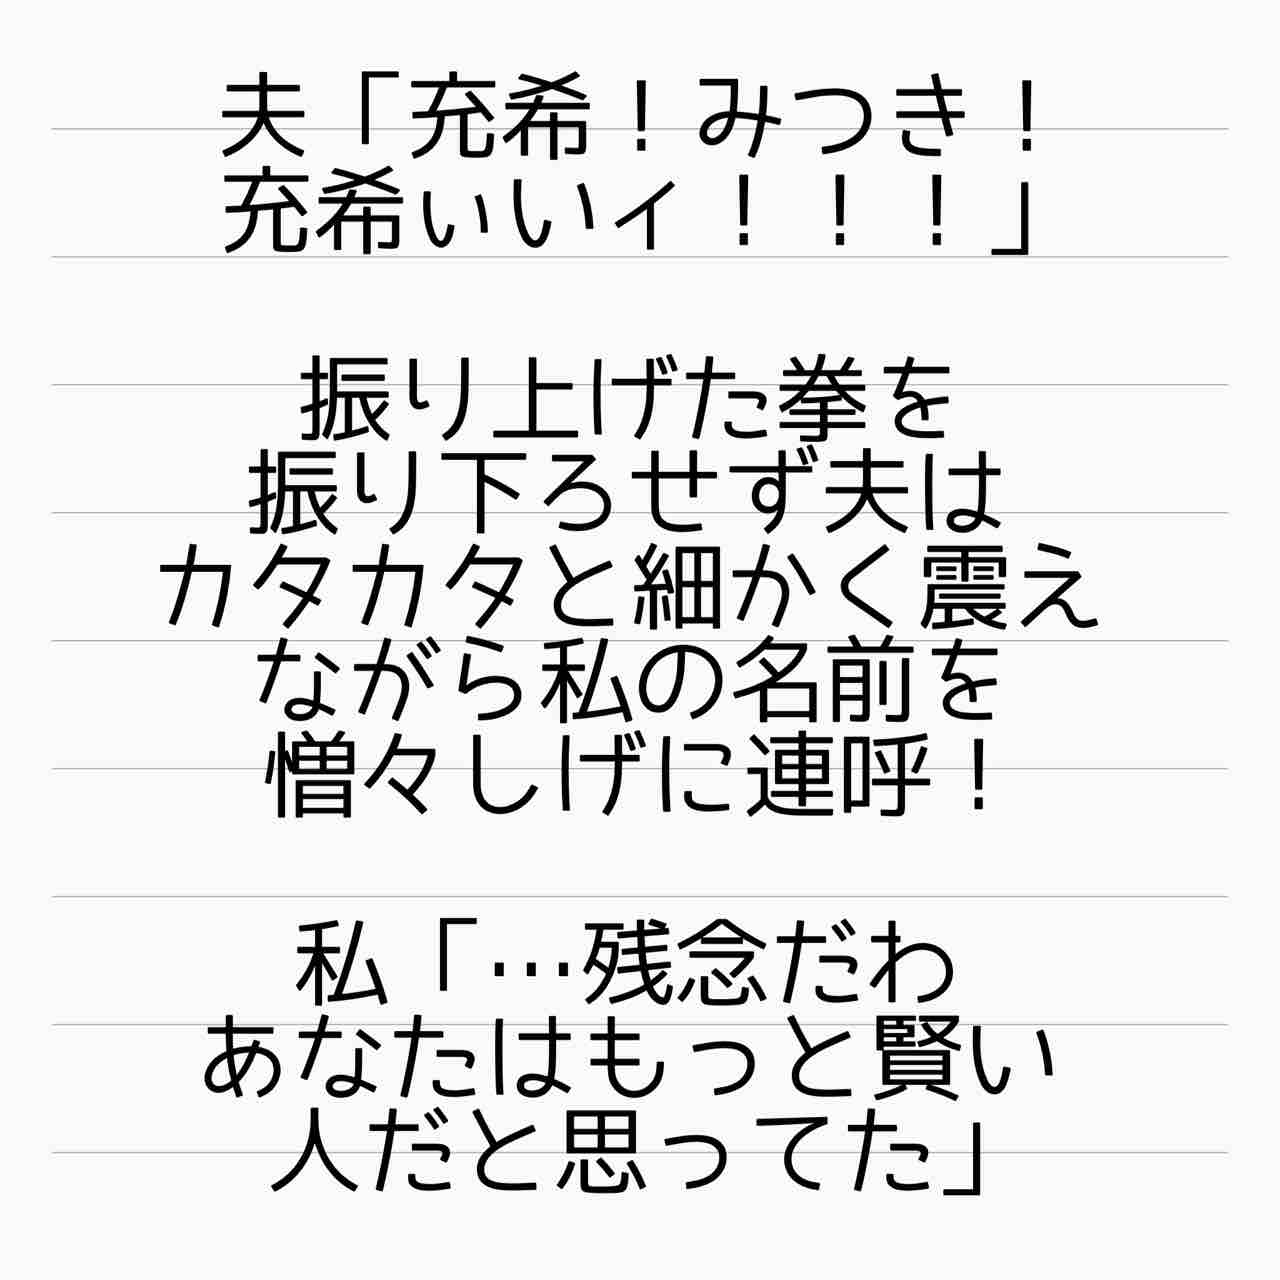 夫「充希！みつき！
充希ぃいィ！！！」
振り上げた拳を
振り下ろせず夫は
カタカタと細かく震え
ながら私の名前を
憎々しげに連呼！
私「…残念だわ
あなたはもっと賢い
人だと思ってた」